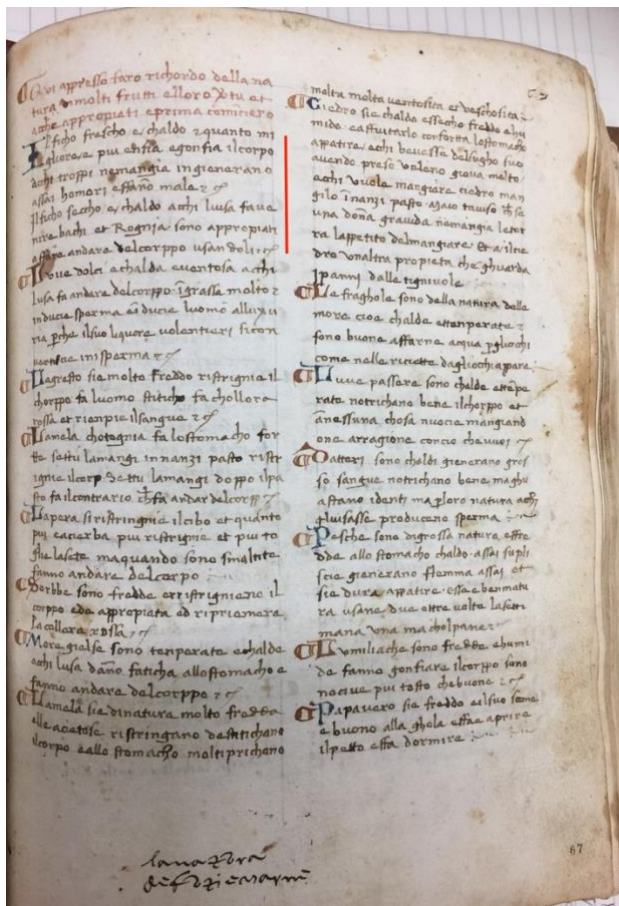 Qui appresso faro richordo della na
tura di molti frutti e lloro vertu et
a cche appropiati e prima comincero
Il ficho frescho e chaldo e quanto mi
gliore e piu enfia e gonfia il corpo
a cchi troppi ne mangia ingienerano
assai homori e ffano male
Il ficho seccho e chaldo a cchi lusa fa ve
nire bachi et Rognia sono appropiati
affare andare del corppo usandoli
Luve dolci e chalda e ventosa a chi
lusa fa andare del corppo ingrassa molto
inducie sperma e inducie luomo alluxu
ria perche il suo liquore volentieri si con
vertiscie in isperma
Lagresto sie molto freddo ristrignie il
chorppo fa luomo stiticho fa chollora
rossa et rienpie il sangue
La mela chotognia fa lo stomacho for
te se ttu la mangi innanzi pasto ristr
ignie il corp Se ttu la mangi doppo il pa
sto fa il contrario che fa andar del corpp
La pera si ristringnie il cibo et quanto
piu e acierba piu ristrignie et piu to
glie la sete ma quando sono smaltite
fanno andare del corpo
Sorbbe sono fredde e rristrignieno il
corppo ed e appropiata ed ripriemere
la collera rossa
More gielse sono temperate e chalde
a chi lusa dano faticha allo stomacho e
fanno andare del corppo
La mela sie di natura molto fredda
elle acetose ristringano destitichano
il corpo e allo stomacho molti prichano
molta molta ventosita et veschosita
Ciedro sie chaldo e secho freddo e hu
mido e affiutarlo conforta lo stomacho
appatire e chi bevesse del sugho suo
avendo preso veleno giova molto
e chi vuole mangiare ciedro man
gilo inanzi pasto
una dona gravida ne mangia le tor
ra lappetito del mangiare Et a il cie
dro unaltra propieta che ghuarda
I panni dalle tignivole
Le fraghole sono della natura delle
more cioe chalde e ttenperate
sono buone affarne acqua per gliocchi
come nelle riciette da gliocchi appare
Luve passere sono chalde e ttenpe
rate notrichano bene il chorppo et
a nessuna chosa nuocie mangiand
one a rragione concio che vuoi
Datteri sono chaldi gienerano gros
so sangue notrichano bene ma ghu
astano i denti ma per loro natura a chi
gli usasse produceno sperma
Pesche sono di grossa natura e ffre
dde allo stomacho chaldo assai supli
scie gienerano flemma assai et
sie dura appatire esse e ben matu
ra usane due o ttre volte la setti
mana una ma chol pane
Lumiliache sono fredde e humi
de fanno gonfiare il corppo sono
nocive piu tosto che buone
Papavero sie freddo e il suo seme
e buono alla ghola e ffae aprire
il petto e ffa dormire
67